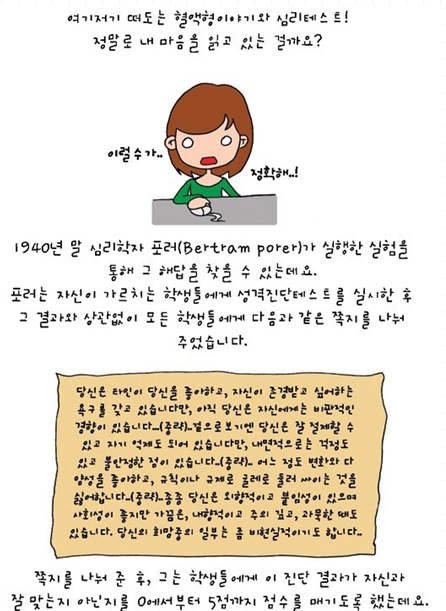 여기저기 떠도는 혈액형이야기와 심리테스트!
정말로 내 마음을 읽고 있는 걸까요?
이럴수가..
정확해..!
1940년 말 심리학자 포러(Bertram porer)가 실행한 실험을
통해 그 해답을 찾을 수 있는데요.
포러는 자신이 가르치는 학생들에게 성격진단테스트를 실시한 후
그 결과와 상관없이 모든 학생들에게 다음과 같은 쪽지를 나눠
주었습니다.
당신은 타인이 당신을 좋아하고, 자신이 존경받고 싶어하는
욕구를 갖고 있습니다만, 아직 당신은 자신에게는 비판적인
경향이 있습니다...(중략)..겉으로보기엔 당신은 잘 절제할 수
있고 자기 억제도 되어 있습니다만, 내면적으로는 걱정도
있고 불안정한 점이 있습니다..(중략).. 어느 정도 변화와 다
양성을 좋아하고, 규칙이나 규제로 굴레로 둘러 싸이는 것을
싫어합니다..(중략)..종종 당신은 외향적이고 붙임성이 있으며
사회성이 좋지만 가끔은, 내향적이고 주의 깊고, 과묵한 때도
있습니다. 당신의 희망중의 일부는 좀 비현실적이기도 합니다..
쪽지를 나눠 준 후, 그는 학생들에게 이 진단 결과가 자신과
잘 맞는지 아닌지를 0에서부터 5점까지 점수를 매기도록 했는데요.